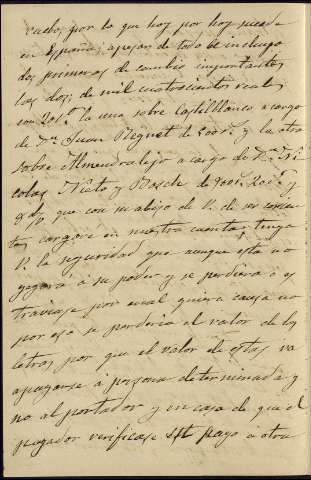 cados por lo que hoy por hoy sucede
en España; apesar de todo le incluyo
dos primeras de cambio importantes
las dos, de mil cuatrocientos reales
con 20 la una sobre Castilblanco a cargo
de Dn Juan de 200 y la otra
sobre Almendralejo a cargo de Dn Ni
colas Nieto y de 200 20 y
que con su abijo de V. de mi cuenta
los cargaré en nuestra cuenta; tenga
V. la seguridad que aunque esta no
yegara à su poder y se perdiera ó es
traviase por cual quiera causa no
por eso se perderia el valor de las
letras por que el valor de estas va
apagarse à persona determinada y
no al portador y en caso de que el
pagador verificase el pago à otra